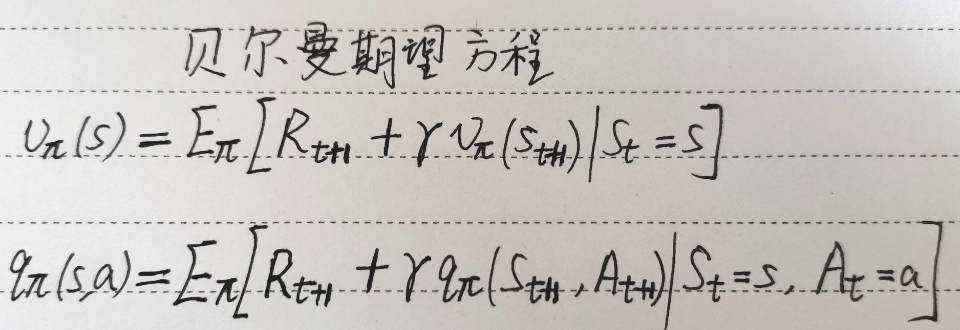 贝尔曼期望方程
υπ(s) = Eπ[Rt+1 + γ υπ(St+1) | St = s]
qπ(s,a) = Eπ[Rt+1 + γ qπ(St+1, At+1) | St = s, At = a]